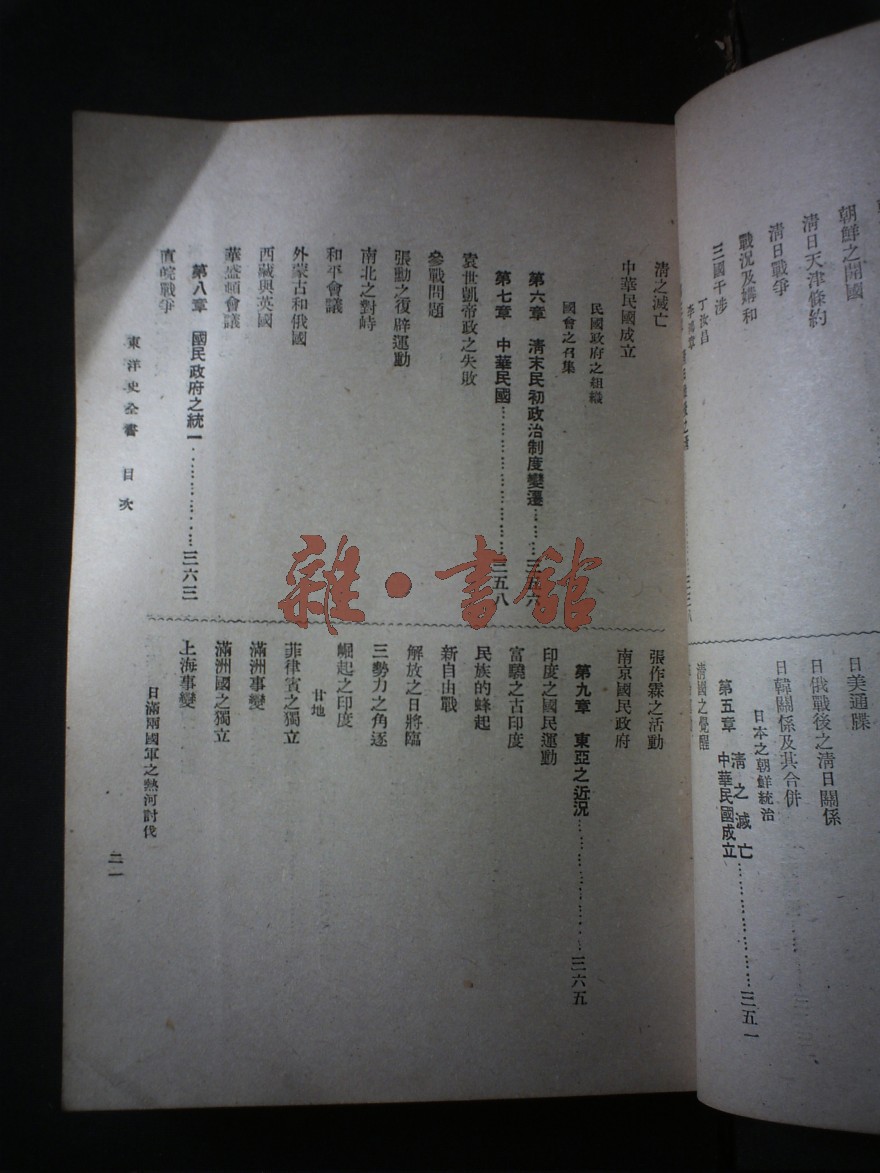 朝鮮之開國
清日天津條約
清日戰爭
戰況及媾和
三國干涉
丁汝昌
李鴻章
日美通牒
日俄戰後之清日關係
日韓關係及其合併
日本之朝鮮統治
第五章 清之滅亡 中華民國成立……三五一
清國之覺醒
清之滅亡
中華民國成立
民國政府之組織
國會之召集
第六章 清末民初政治制度變遷……三五六
第七章 中華民國……三五八
袁世凱帝政之失敗
參戰問題
張勳之復辟運動
南北之對峙
和平會議
外蒙古和俄國
西藏與英國
華盛頓會議
第八章 國民政府之統一……三六三
直皖戰爭
張作霖之活動
南京國民政府
第九章 東亞之近況……三六五
印度之國民運動
富驍之古印度
民族的蜂起
新自由戰
解放之日將臨
三勢力之角逐
甘地
崛起之印度
菲律賓之獨立
滿洲事變
滿洲國之獨立
上海事變
日滿兩國軍之熱河討伐
東洋史全書 目次
二一
雜·書館